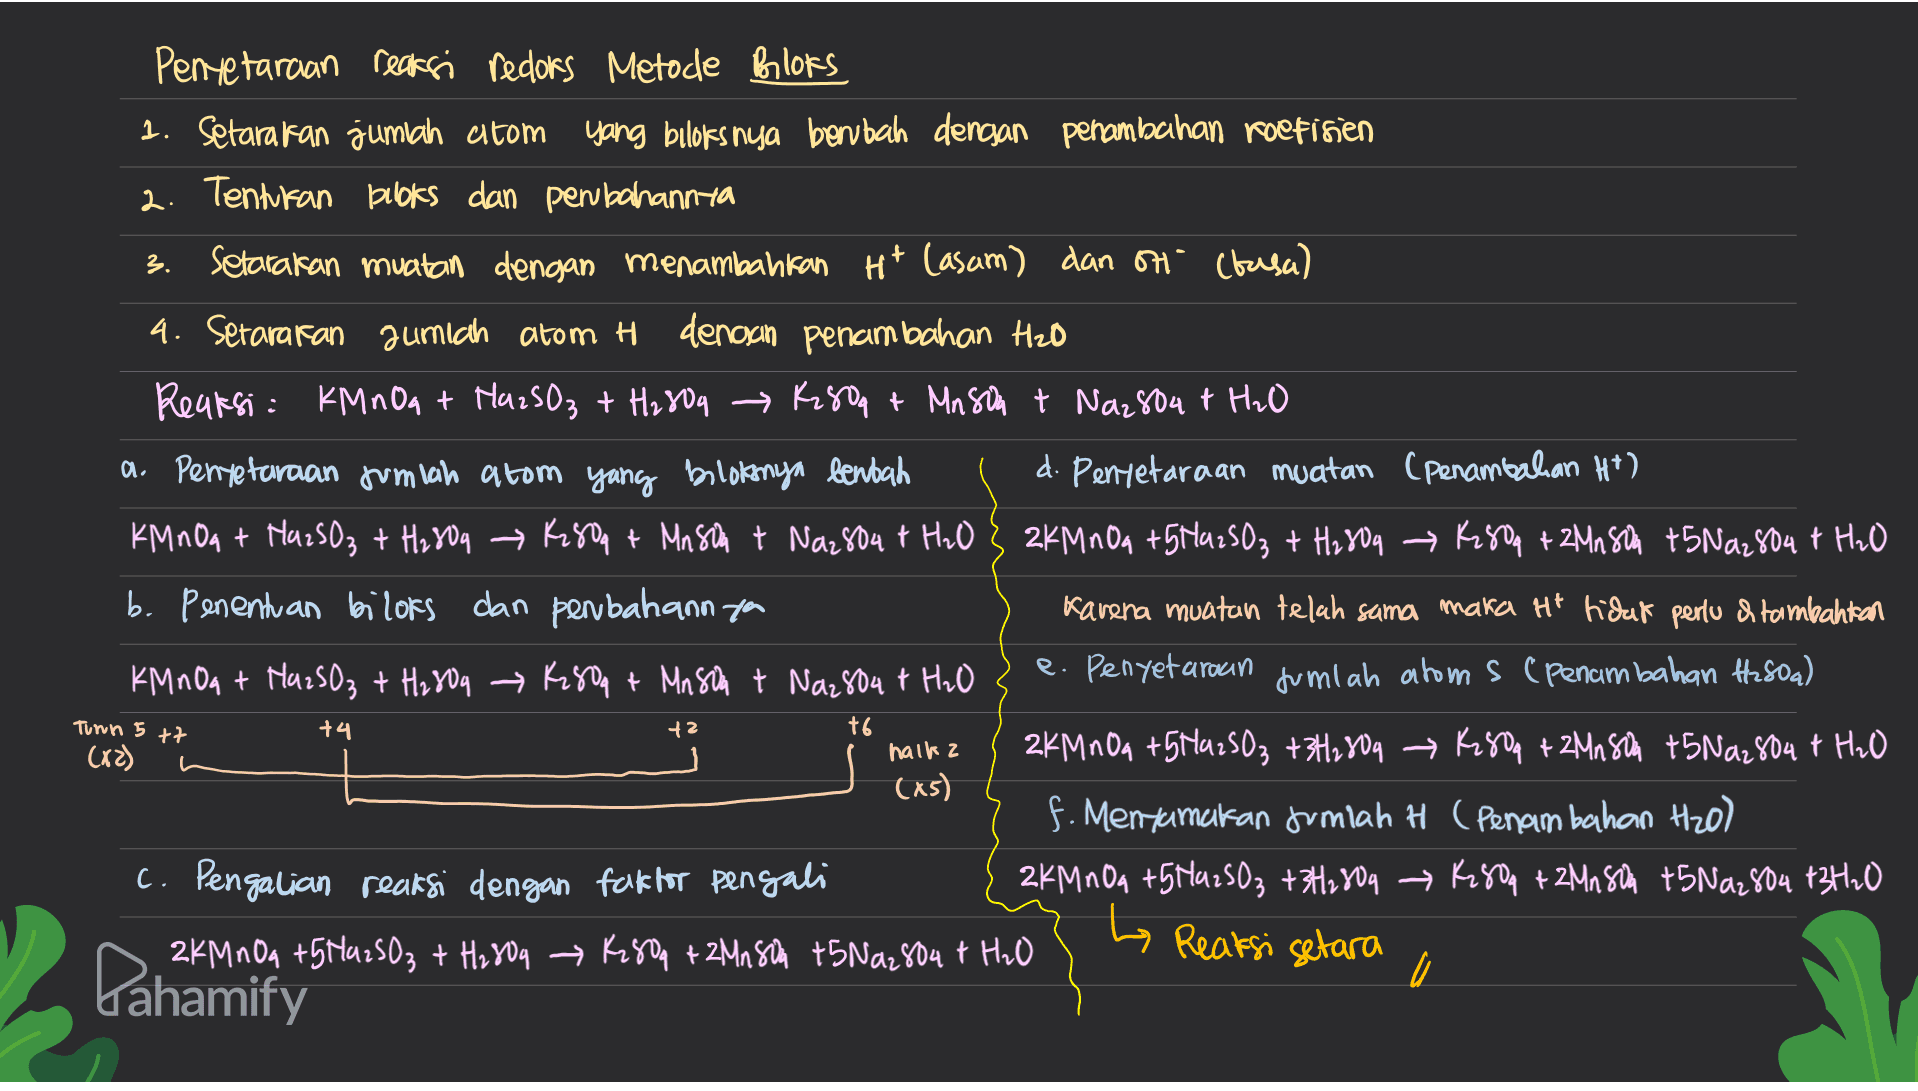 Penyetaraan reaksi redoks Metode Biloks
1. Setarakan jumlah atom yang biloksnya berubah dengan penambahan koefisien
2. Tentukan biloks dan perubahannya
3. Setarakan muatan dengan menambahkan H⁺ (asam) dan OH⁻ (basa)
4. Setarakan jumlah atom H dengan penambahan H₂O
Reaksi : KMnO₄ + Na₂SO₃ + H₂SO₄ → K₂SO₄ + MnSO₄ + Na₂SO₄ + H₂O
a. Penyetaraan jumlah atom yang biloksnya berubah
KMnO₄ + Na₂SO₃ + H₂SO₄ → K₂SO₄ + MnSO₄ + Na₂SO₄ + H₂O
b. Penentuan biloks dan perubahannya
KMnO₄ + Na₂SO₃ + H₂SO₄ → K₂SO₄ + MnSO₄ + Na₂SO₄ + H₂O
Turun 5 +7 +4 +2 +6
(x2) naik 2
(x5)
c. Pengalian reaksi dengan faktor pengali
2KMnO₄ + 5Na₂SO₃ + H₂SO₄ → K₂SO₄ + 2MnSO₄ + 5Na₂SO₄ + H₂O
d. Penyetaraan muatan (penambahan H⁺)
2KMnO₄ + 5Na₂SO₃ + H₂SO₄ → K₂SO₄ + 2MnSO₄ + 5Na₂SO₄ + H₂O
Karena muatan telah sama maka H⁺ tidak perlu ditambahkan
e. Penyetaraan jumlah atom S (Penambahan H₂SO₄)
2KMnO₄ + 5Na₂SO₃ + 3H₂SO₄ → K₂SO₄ + 2MnSO₄ + 5Na₂SO₄ + H₂O
f. Menyamakan jumlah H (Penambahan H₂O)
2KMnO₄ + 5Na₂SO₃ + 3H₂SO₄ → K₂SO₄ + 2MnSO₄ + 5Na₂SO₄ + 3H₂O
↳ Reaksi setara //
Pahamify